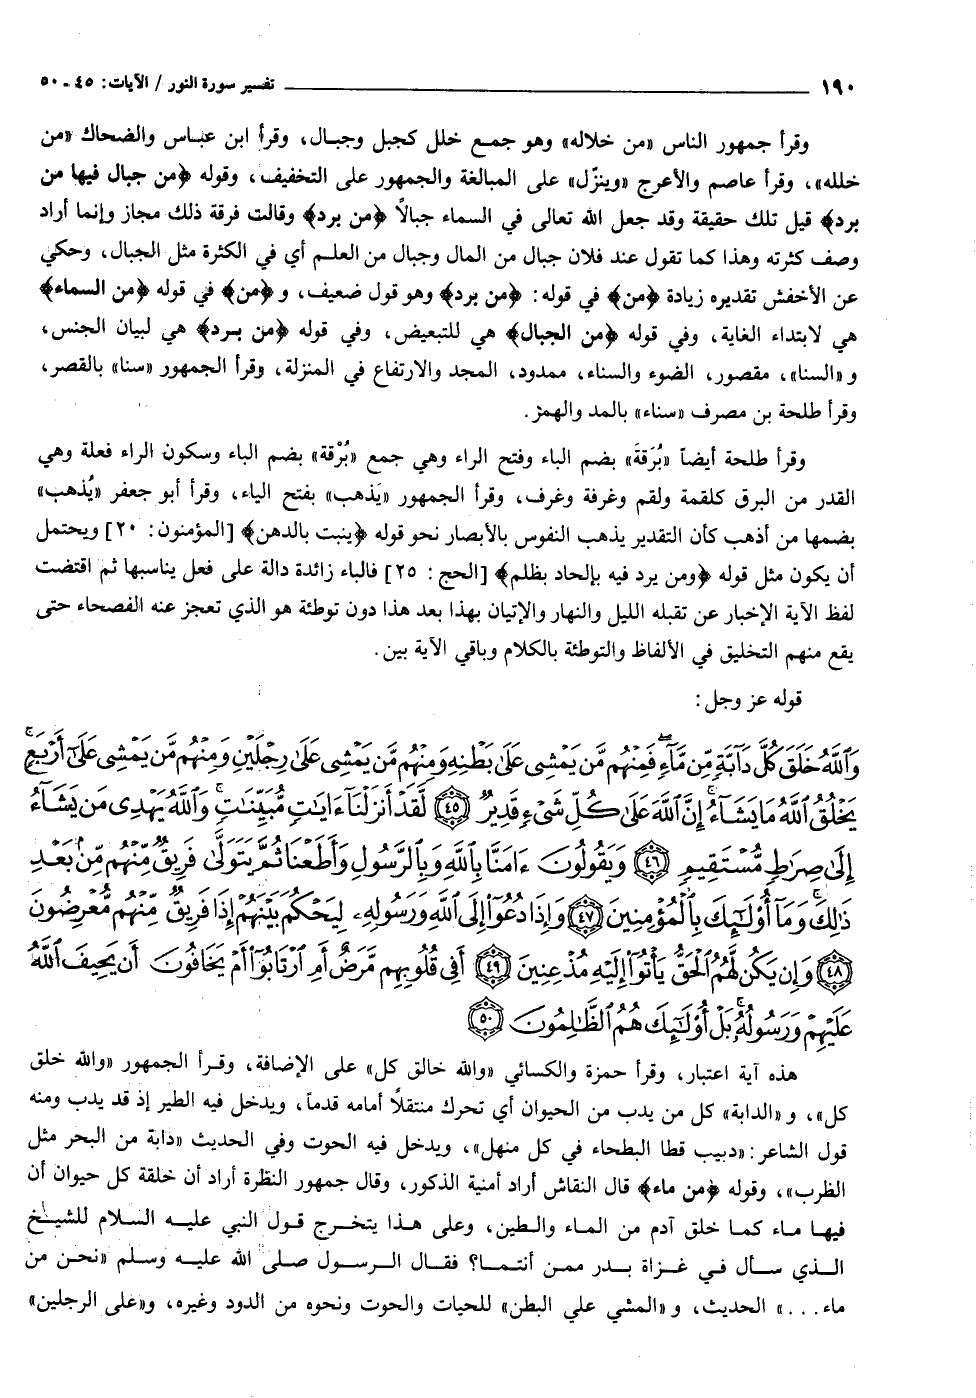 ١٩٠ تفسير سورة النور / الآيات: ٤٥ - ٥٠
وقرأ جمهور الناس «من خلاله» وهو جمع خلل كجبل وجبال، وقرأ ابن عباس والضحاك «من
خلله»، وقرأ عاصم والأعرج «وينزّل» على المبالغة والجمهور على التخفيف، وقوله ﴿من جبال فيها من
برد﴾ قيل تلك حقيقة وقد جعل الله تعالى في السماء جبالاً ﴿من برد﴾ وقالت فرقة ذلك مجاز وإنما أراد
وصف كثرته وهذا كما تقول عند فلان جبال من المال وجبال من العلم أي في الكثرة مثل الجبال، وحكي
عن الأخفش تقديره زيادة ﴿من﴾ في قوله: ﴿من برد﴾ وهو قول ضعيف، و﴿من﴾ في قوله ﴿من السماء﴾
هي لابتداء الغاية، وفي قوله ﴿من الجبال﴾ هي للتبعيض، وفي قوله ﴿من برد﴾ هي لبيان الجنس،
و«السنا»، مقصور، الضوء والسناء، ممدود، المجد والارتفاع في المنزلة، وقرأ الجمهور «سنا» بالقصر،
وقرأ طلحة بن مصرف «سناء» بالمد والهمز.
وقرأ طلحة أيضاً «بُرَقة» بضم الباء وفتح الراء وهي جمع «بُرْقة» بضم الباء وسكون الراء فعلة وهي
القدر من البرق كلقمة ولقم وغرفة وغرف، وقرأ الجمهور «يَذهب» بفتح الياء، وقرأ أبو جعفر «يُذهب»
بضمها من أذهب كأن التقدير يذهب النفوس بالأبصار نحو قوله ﴿ينبت بالدهن﴾ [المؤمنون: ٢٠] ويحتمل
أن يكون مثل قوله ﴿ومن يرد فيه بإلحاد بظلم﴾ [الحج: ٢٥] فالباء زائدة دالة على فعل يناسبها ثم اقتضت
لفظ الآية الإخبار عن تقبله الليل والنهار والإتيان بهذا بعد هذا دون توطئة هو الذي تعجز عنه الفصحاء حتى
يقع منهم التخليق في الألفاظ والتوطئة بالكلام وباقي الآية بين.
قوله عز وجل:
وَٱللَّهُ خَلَقَ كُلَّ دَآبَّةٍ مِّن مَّآءٍ فَمِنْهُم مَّن يَمْشِى عَلَىٰ بَطْنِهِۦ وَمِنْهُم مَّن يَمْشِى عَلَىٰ رِجْلَيْنِ وَمِنْهُم مَّن يَمْشِى عَلَىٰٓ أَرْبَعٍ
يَخْلُقُ ٱللَّهُ مَا يَشَآءُ إِنَّ ٱللَّهَ عَلَىٰ كُلِّ شَىْءٍ قَدِيرٌ ﴿٤٥﴾ لَّقَدْ أَنزَلْنَآ ءَايَٰتٍ مُّبَيِّنَٰتٍ وَٱللَّهُ يَهْدِى مَن يَشَآءُ
إِلَىٰ صِرَٰطٍ مُّسْتَقِيمٍ ﴿٤٦﴾ وَيَقُولُونَ ءَامَنَّا بِٱللَّهِ وَبِٱلرَّسُولِ وَأَطَعْنَا ثُمَّ يَتَوَلَّىٰ فَرِيقٌ مِّنْهُم مِّنۢ بَعْدِ
ذَٰلِكَ وَمَآ أُو۟لَٰٓئِكَ بِٱلْمُؤْمِنِينَ ﴿٤٧﴾ وَإِذَا دُعُوٓا۟ إِلَى ٱللَّهِ وَرَسُولِهِۦ لِيَحْكُمَ بَيْنَهُمْ إِذَا فَرِيقٌ مِّنْهُم مُّعْرِضُونَ
﴿٤٨﴾ وَإِن يَكُن لَّهُمُ ٱلْحَقُّ يَأْتُوٓا۟ إِلَيْهِ مُذْعِنِينَ ﴿٤٩﴾ أَفِى قُلُوبِهِم مَّرَضٌ أَمِ ٱرْتَابُوٓا۟ أَمْ يَخَافُونَ أَن يَحِيفَ ٱللَّهُ
عَلَيْهِمْ وَرَسُولُهُۥ بَلْ أُو۟لَٰٓئِكَ هُمُ ٱلظَّٰلِمُونَ ﴿٥٠﴾
هذه آية اعتبار، وقرأ حمزة والكسائي «والله خالق كل» على الإضافة، وقرأ الجمهور «والله خلق
كل»، و«الدابة» كل من يدب من الحيوان أي تحرك منتقلاً أمامه قدماً، ويدخل فيه الطير إذ قد يدب ومنه
قول الشاعر: «دبيب قطا البطحاء في كل منهل»، ويدخل فيه الحوت وفي الحديث «دابة من البحر مثل
الظرب»، وقوله ﴿من ماء﴾ قال النقاش أراد أمنية الذكور، وقال جمهور النظرة أراد أن خلقة كل حيوان أن
فيها ماء كما خلق آدم من الماء والطين، وعلى هذا يتخرج قول النبي عليه السلام للشيخ
الذي سأل في غزاة بدر ممن أنتما؟ فقال الرسول صلى الله عليه وسلم «نحن من
ماء...» الحديث، و«المشي علي البطن» للحيات والحوت ونحوه من الدود وغيره، و«على الرجلين»